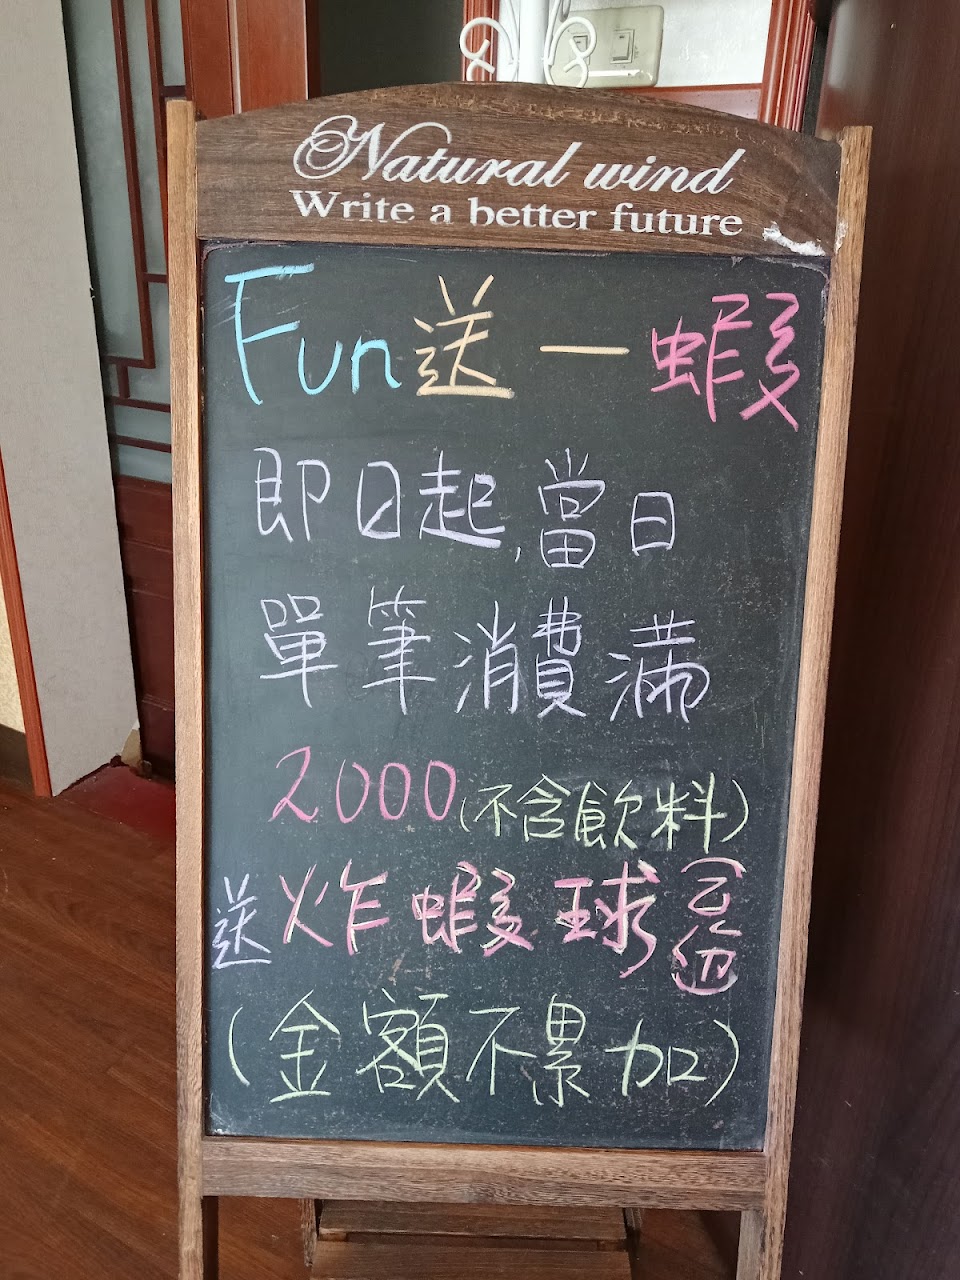 Natural wind
Write a better future
Fun送一蝦
即日起,當日
單筆消費滿
2000(不含飲料)
送炸蝦球
份
(金額不累加)